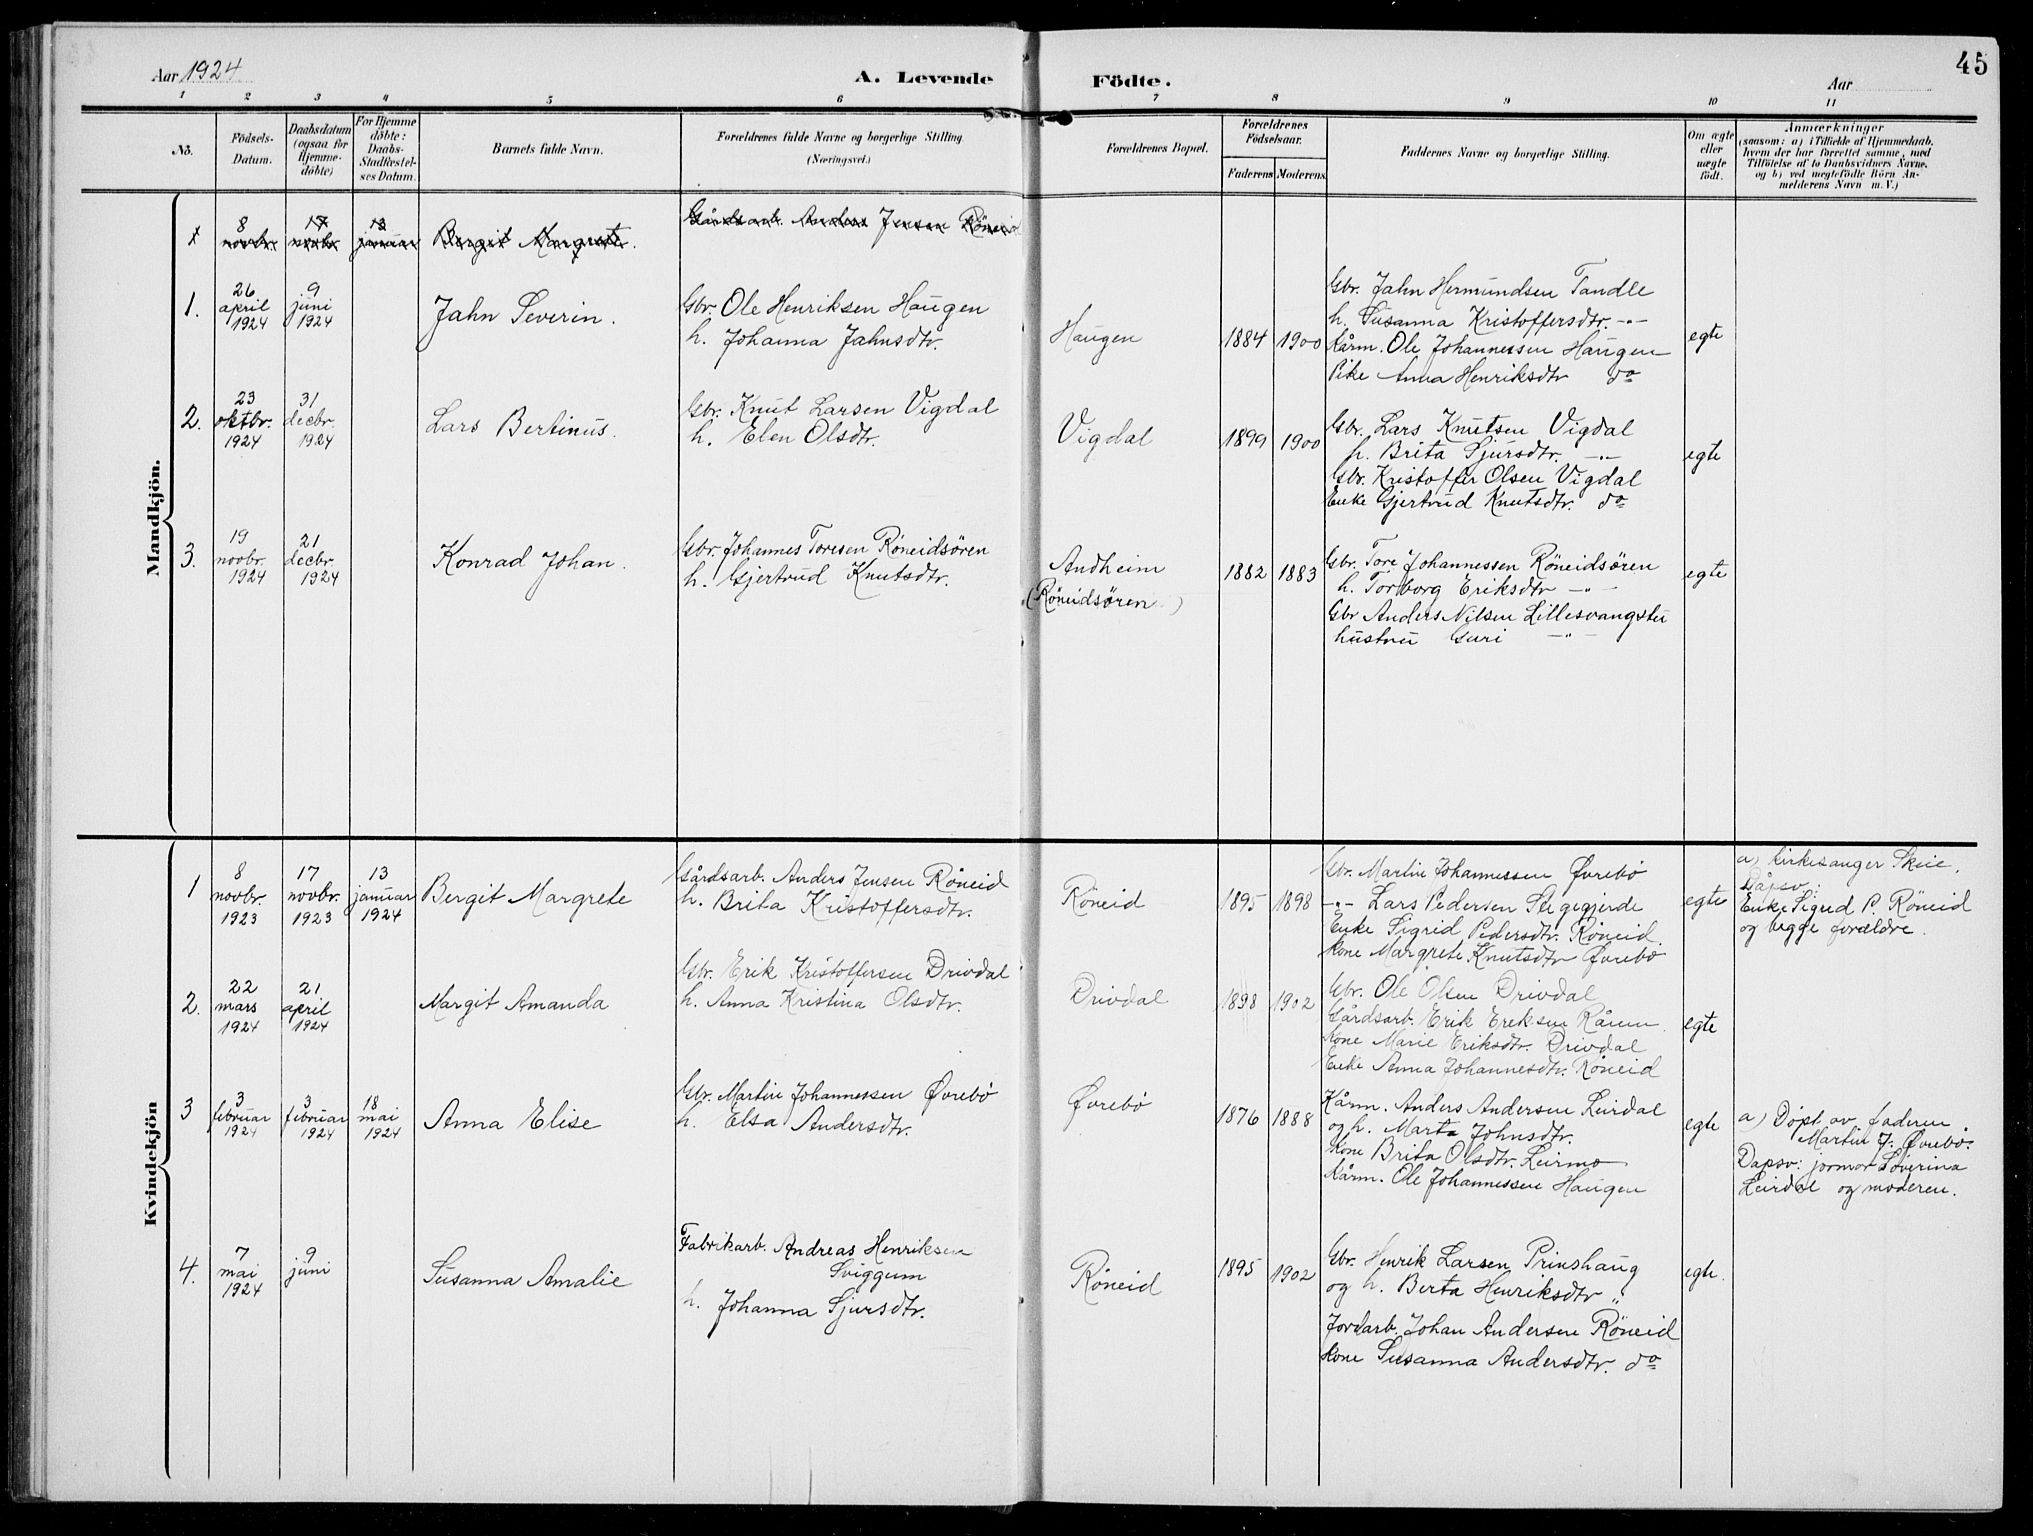 45
Aar 1924
A. Levende Födte.
Aar
1 2 3 4 5 6 7 8 9 10 11
No.
Födsels-
Datum.
Daabsdatum
(ogsaa for
Hjemme-
döbte)
For Hjemme
döbte:
Daabs-
Stadfæstel-
ses Datum.
Barnets fulde Navn.
Forældrenes fulde Navne og borgerlige Stilling
(Næringsvei.)
Forældrenes Bopæl.
Forældrenes
Födselsaar.
Faderens Moderens
Faddernes Navne og borgerlige Stilling.
Om ægte
eller
uægte
födt.
Anmærkninger
(saasom: a) i Tilfælde af Hjemmedaab,
hvem der har forrettet samme, med
Tilföielse af to Daabsvidners Navne,
og b) ved uægtefödte Börn An-
melderens Navn m. V.)
Mandkjön.
1 8 novbr. 17 novbr. 13 januar Bergit Margrete. Gårdsarb. Anders Jensen Röneid
1.
26
april
1924
9
juni
1924
Jahn Severin.
Gbr. Ole Henriksen Haugen
h. Johanna Jahnsdtr.
Haugen
1884 1900
Gbr. Jahn Hermundsen Tandle
h. Susanna Kristoffersdtr. -"-
Kårm. Ole Johannessen Haugen
Pike Anna Henriksdtr do
egte
2.
23
oktbr.
1924
31
decbr.
1924
Lars Bertinus.
Gbr. Knut Larsen Vigdal
h. Elen Olsdtr.
Vigdal
1899 1900
Gbr. Lars Knutsen Vigdal
h. Brita Sjursdtr. -"-
Gbr. Kristoffer Olsen Vigdal
Enke Gjertrud Knutsdtr. do
egte
3.
19
novbr.
1924
21
decbr.
1924
Konrad Johan.
Gbr. Johannes Toresen Röneidsören
h. Gjertrud Knutsdtr.
Andheim
(Röneidsören)
1882 1883
Gbr. Tore Johannessen Röneidsören
h. Torborg Eriksdtr -"-
Gbr Anders Nilsen Lillesvangstu
hustru Guri -"-
egte
Kvindekjön
1
8
novbr.
1923
17
novbr.
1923
13
januar
1924
Bergit Margrete
Gårdsarb. Anders Jensen Röneid
h. Brita Kristoffersdtr.
Röneid
1895 1898
Gbr. Martin Johannessen Øvrebö
-"- Lars Pedersen Stegegjerde
Enke Sigrid Pedersdtr. Röneid.
Kone Margrete Knutsdtr Øvrebö
egte
a) Kirkesanger Skeie.
Dåpsv:
Enke Sigrid P. Röneid
og begge forældre.
2.
22
mars
1924
21
april
1924
Margit Amanda
Gbr. Erik Kristoffersen Drivdal
h. Anna Kristina Olsdtr.
Drivdal
1898 1902
Gbr. Ole Olsen Drivdal
Gårdsarb. Erik Eriksen Kårm
Kone Marie Eriksdtr. Drivdal
Enke Anna Johannesdtr. Röneid
egte
3
3
februar
1924
3
februar
1924
18
mai
1924
Anna Elise
Gbr. Martin Johannessen Øvrebö
h. Elsa Andersdtr.
Øvrebö
1876 1888
Kårm. Anders Andersen Leirdal
og h. Marta Johnsdtr.
Kone Brita Olsdtr. Leirmo
Kårm. Ole Johannessen Haugen
egte
a) Döpt av faderen
Martin J. Øvrebö.
Dapsv: jormor Severina
Leirdal og moderen.
4.
7
mai
1924
9
juni
Susanna Amalie
Fabrikarb. Andreas Henriksen
Sviggum
h. Johanna Sjursdtr.
Röneid
1895 1902
Gbr. Henrik Larsen Prinshaug
og h. Berta Henriksdtr "
Jordarb. Johan Andersen Röneid
Kone Susanna Andersdtr. do
egte.